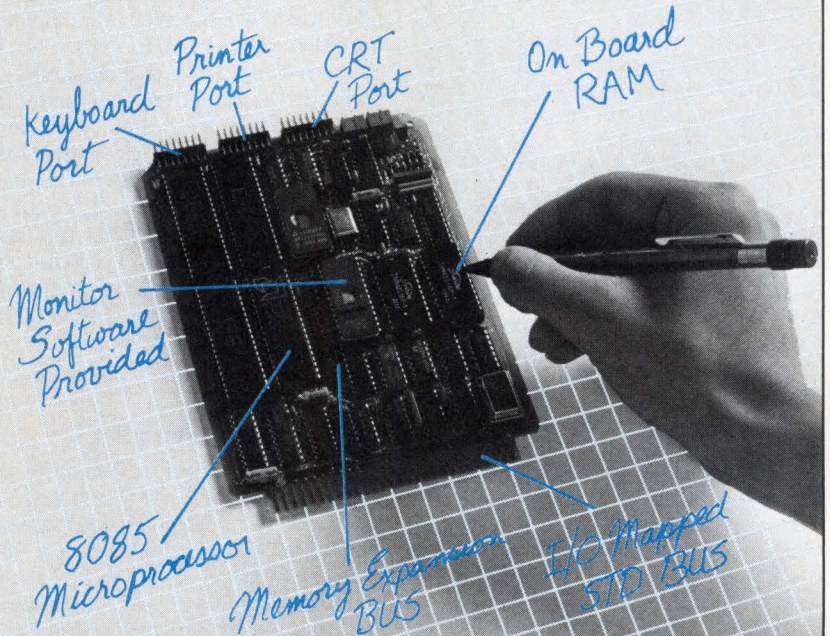 Keyboard
Port
Printer
Port
CRT
Port
On Board
RAM
Monitor
Software
Provided
8085
Microprocessor
Memory Expansion
BUS
I/O Mapped
STD BUS